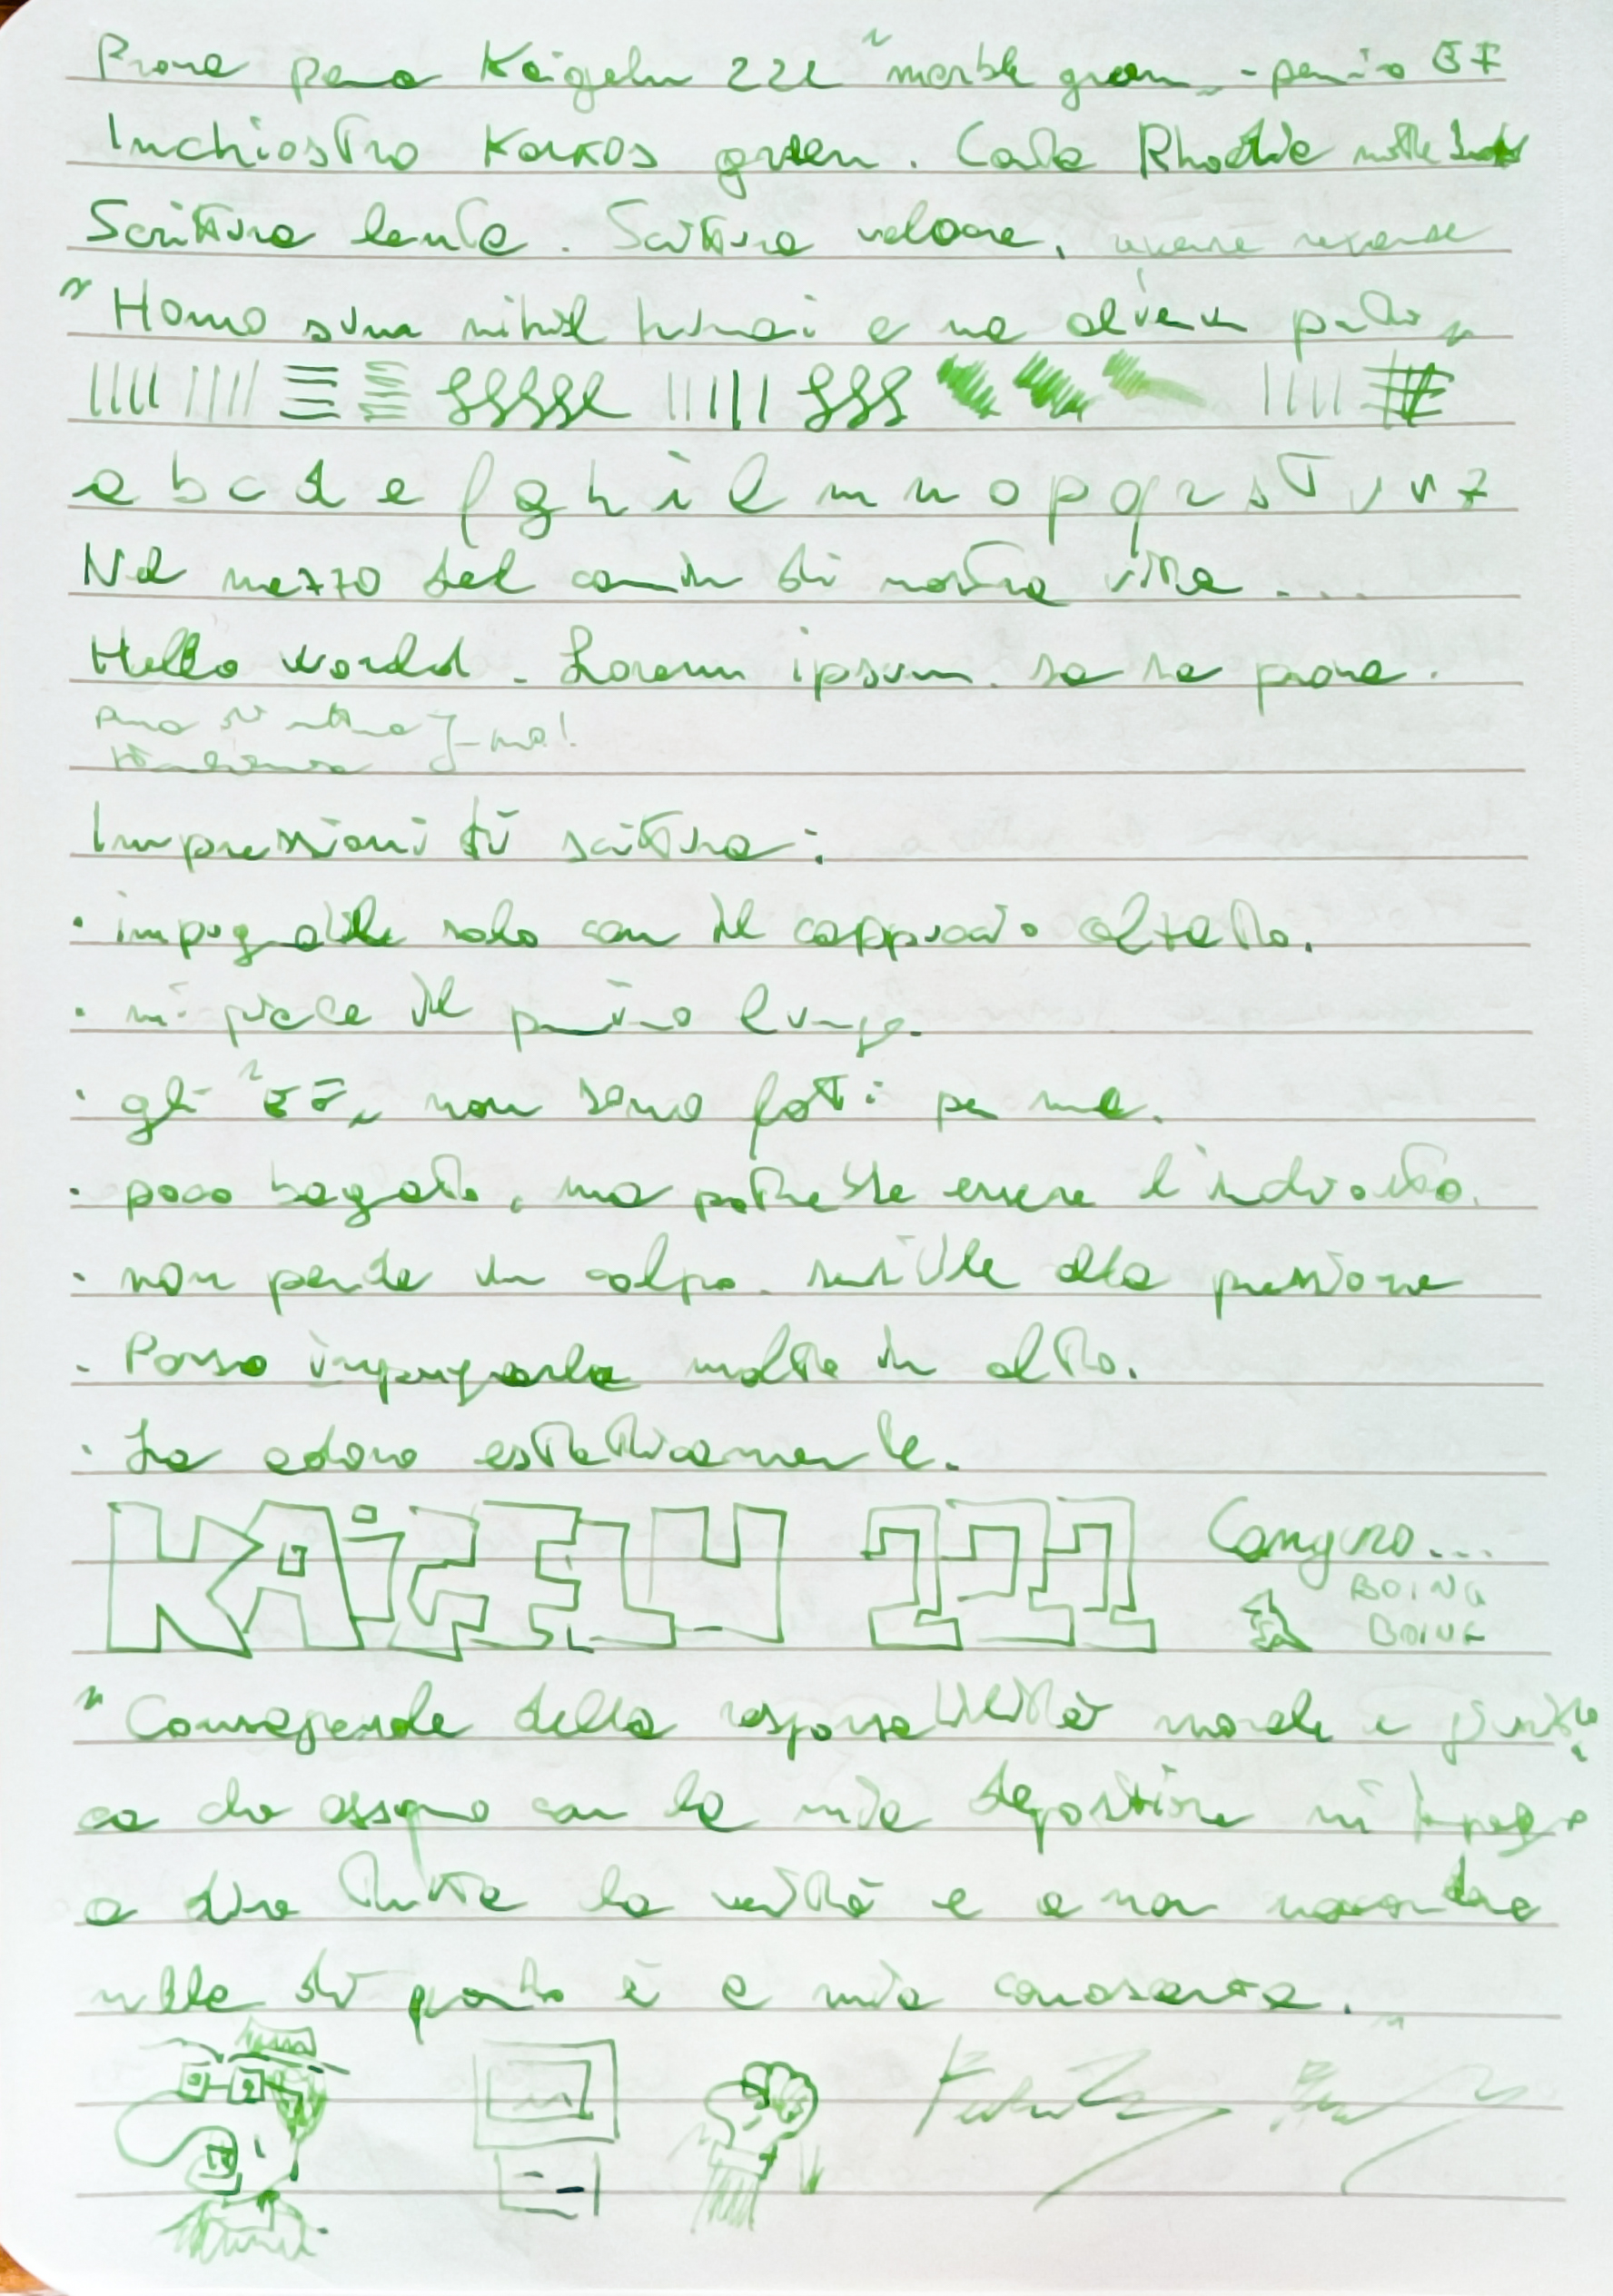 Prova penna Kaigelu 222 "marble green" - pennino EF
Inchiostro Karkos green. Carta Rhodia
Scrittura lenta. Scrittura veloce,
"Homo sum nihil humani a me alienum puto"
a b c d e f g h i l m n o p q r s t u v z
Nel mezzo del cammin di nostra vita ....
Hello world. Lorem ipsum. sa sa prova.
Impressioni di scrittura:
· impugnabile solo con il cappuccio calzato.
· mi piace il pennino lungo.
· gli "EF" non sono fatti per me.
· poco bagnato, ma potrebbe essere l'inchiostro.
· non perde un colpo. sensibile alla pressione
· Posso impugnarla molto in alto.
· La adoro esteticamente.
KAiGELU 222 Canguro...
BOING
BOING
"Consapevole della responsabilità morale e giuridi
ca che assumo con la mia deposizione mi impegno
a dire tutta la verità e a non nascondere
nulla di quanto è a mia conoscenza."